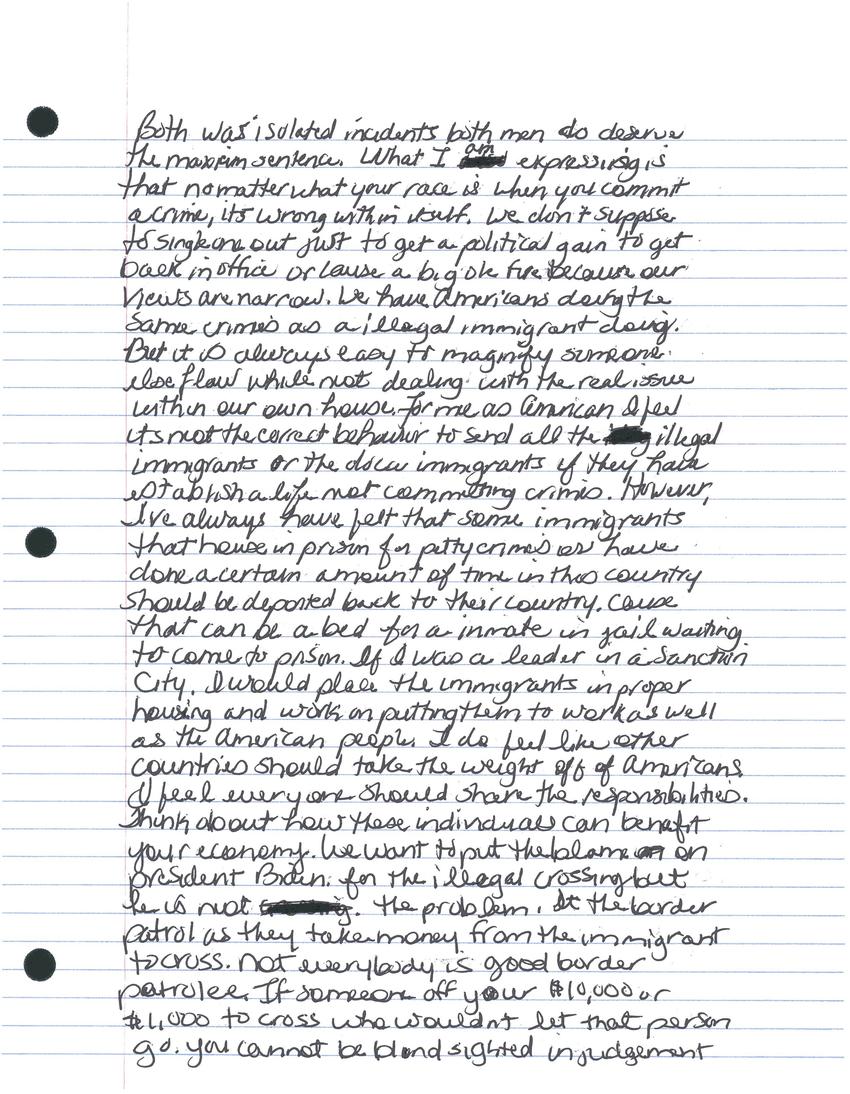 Both was isolated incidents both men do deserve
the maxium sentence. What I am expressing is
that no matter what your race is when you commit
a crime, its wrong within itself. We don't suppose
to single one out just to get a political gain to get
back in office or cause a big ole fire because our
views are narrow. We have Americans doing the
same crimes as a illegal immigrant doing.
But it is always easy to magnify someone
else flaw while not dealing with the real issue
within our own house. for me as American I feel
its not the correct behavior to send all the illegal
immigrants or the immigrants if they have
establish a life not committing crimes. However,
I've always have felt that some immigrants
that house in prison for petty crimes or have
done a certain amount of time in this country
should be deported back to their country. Cause
that can be a bed for a inmate in jail waiting
to come to prison. If I was a leader in a
City. I would place the immigrants in proper
housing and work on putting them to work as well
as the American people. I do feel like other
countries should take the weight off of Americans
I feel everyone should share the responsibilities.
Think about how these individuals can benefit
your economy. We want to put the blame on
president Biden. for the illegal crossing but
he is not . the problem. It the border
patrol as they take money from the immigrant
to cross. Not everybody is good border
patrolee. If someone off your $10,000 or
$1,000 to cross who wouldn't let that person
go. you cannot be blond sighted in judgement